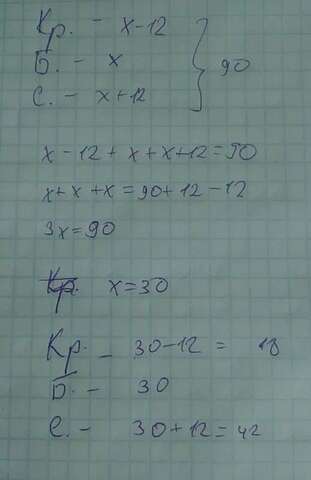 Кр. - x-12
Б. - x
С. - x+12
} 90
x-12+x+x+12=90
x+x+x=90+12-12
3x=90
Кр. x=30
Кр. - 30-12= 18
Б. - 30
С. - 30+12=42